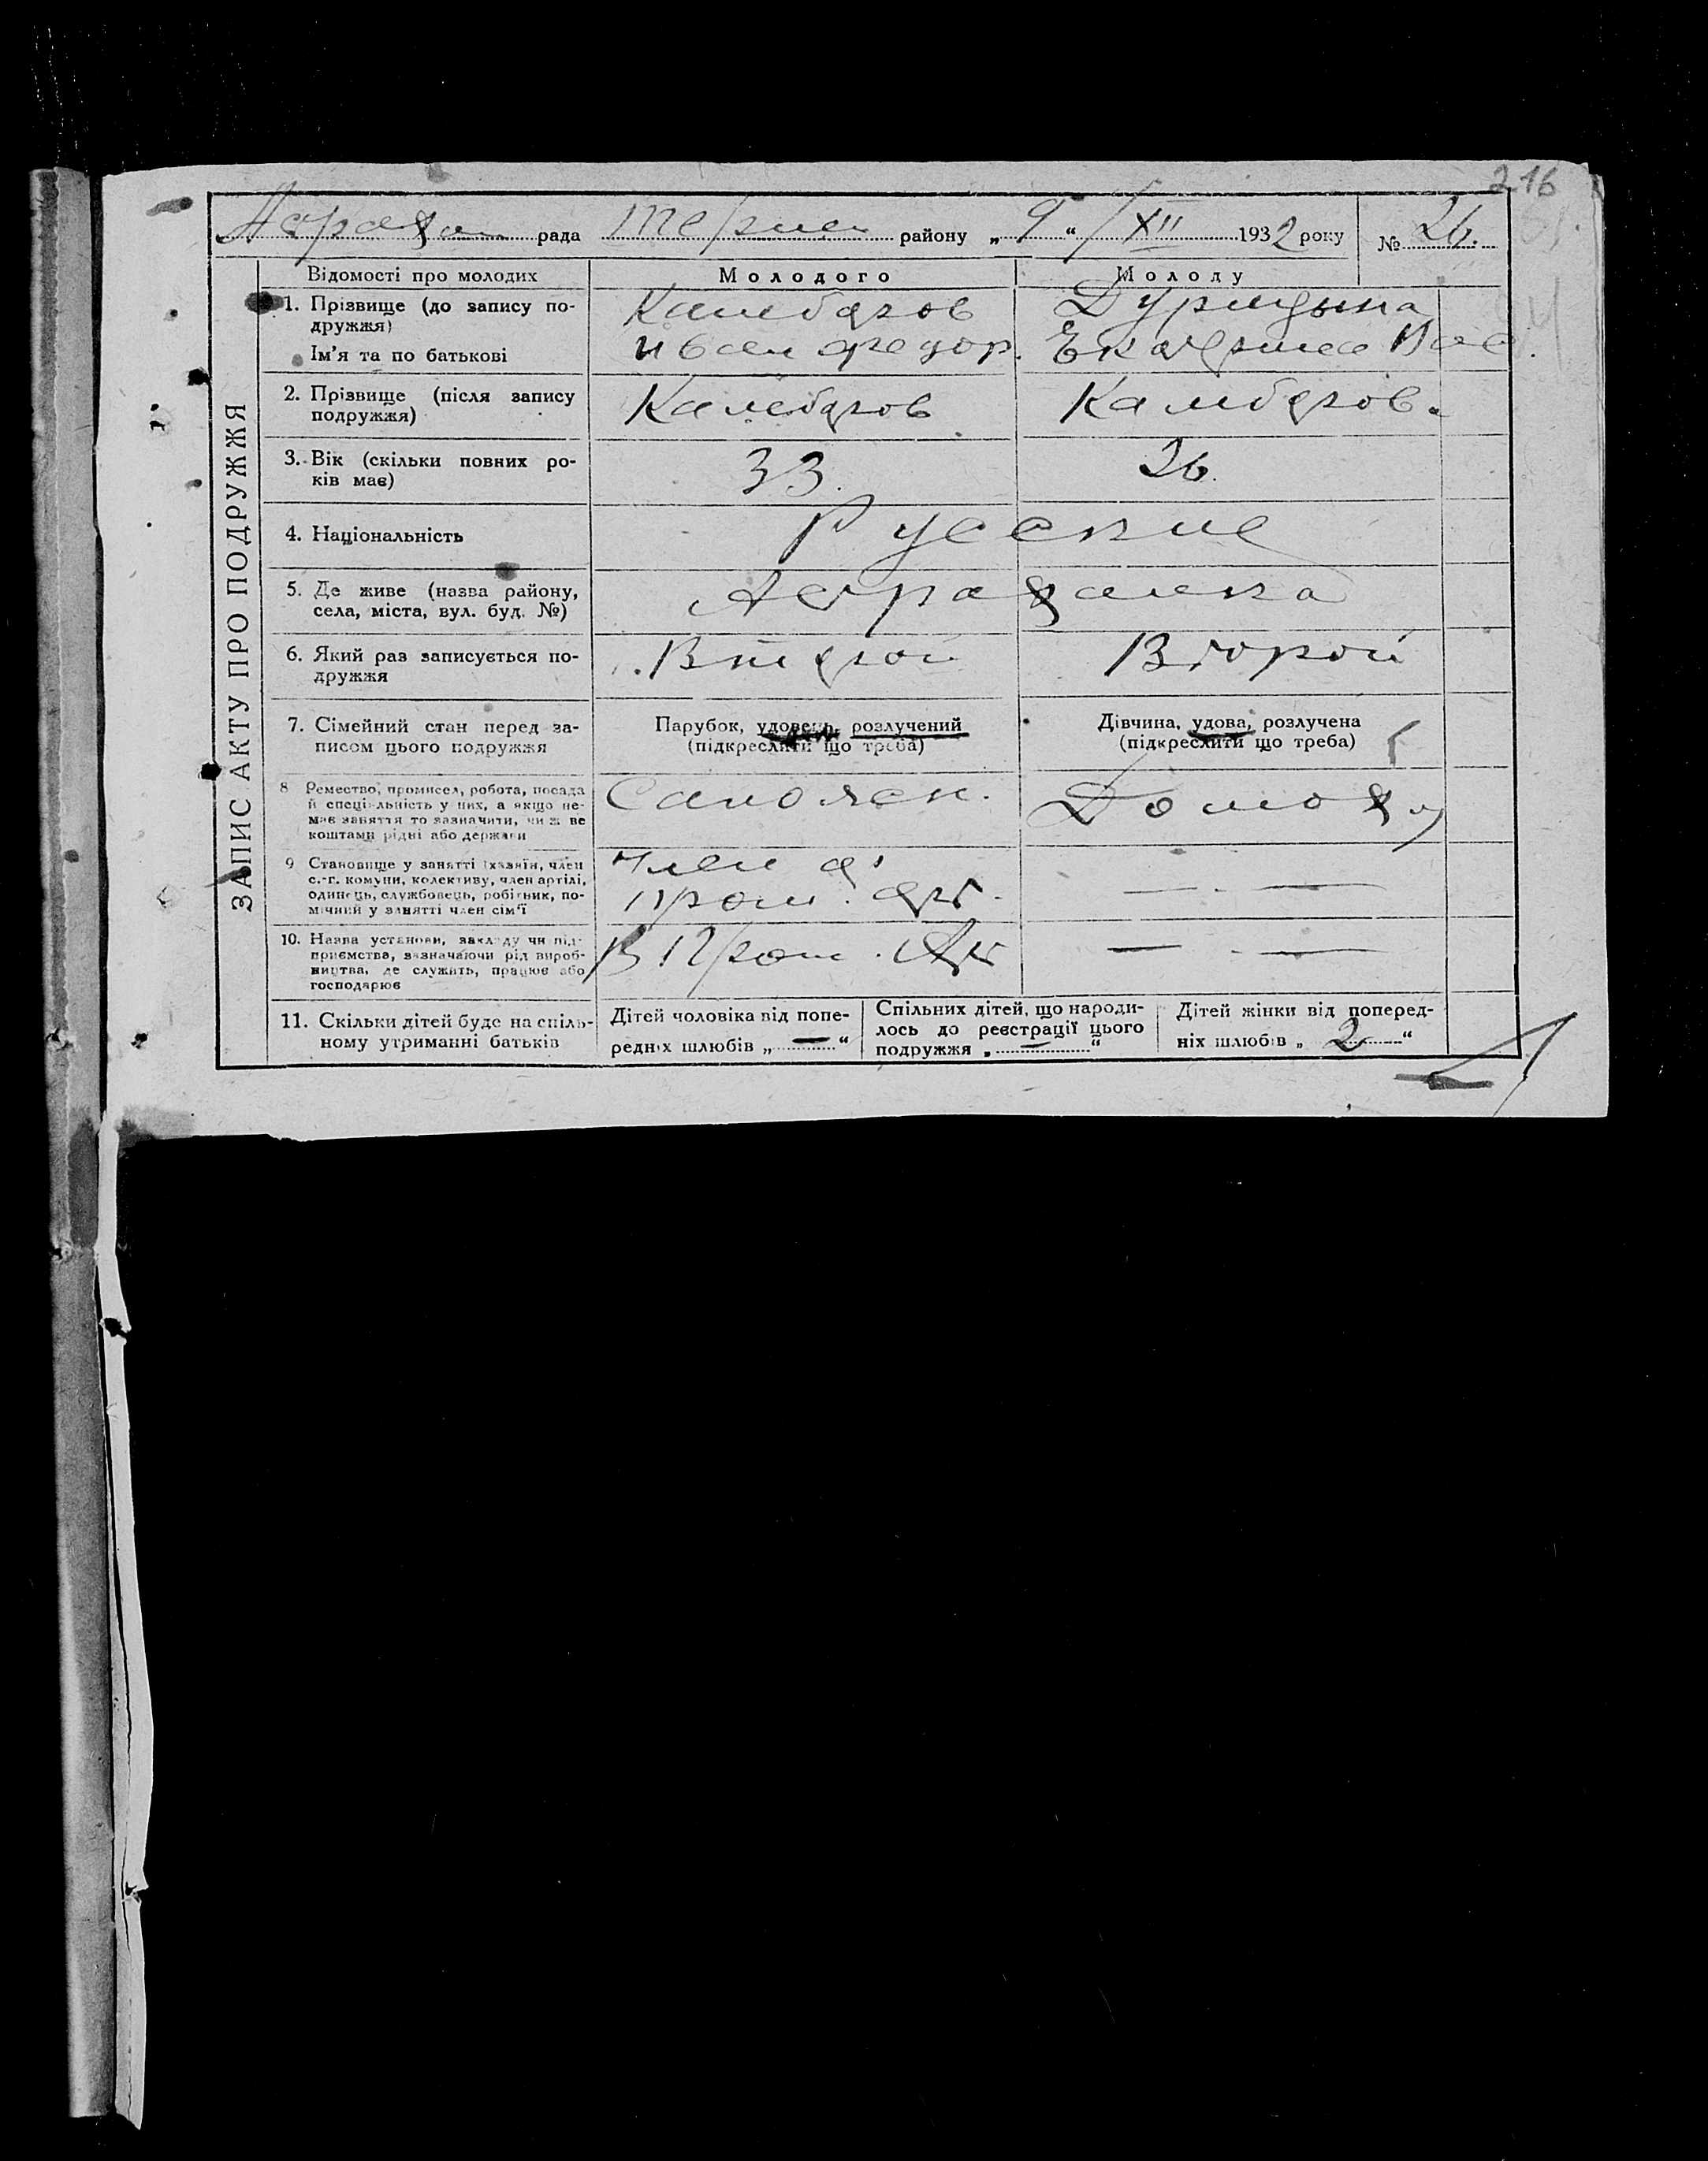 216
Астрахан рада Терпен району „9“ XII 1932 року № 26.
ЗАПИС АКТУ ПРО ПОДРУЖЖЯ
Відомості про молодих Молодого Молоду
1. Прізвище (до запису по-
дружжя)
Камбаров
Ім'я та по батькові
Иван Федор. Екатерина Вас.
2. Прізвище (після запису
подружжя)
Камбаров Камбаров.
3. Вік (скільки повних ро-
ків має)
33. 26.
4. Національність
Русские
5. Де живе (назва району,
села, міста, вул. буд. №)
Астраханка
6. Який раз записується по-
дружжя
Второй Второй
7. Сімейний стан перед за-
писом цього подружжя
Парубок, удовець, розлучений
(підкреслити що треба)
Дівчина, удова, розлучена
(підкреслити що треба)
8 Ремество, промисел, робота, посада
й спеціяльність у них, а якщо не-
має заняття то зазначити, чиїм
коштами рідні або держави
Сапожн. Домохоз
9 Становище у занятті (хазяїн, член
с.-г. комуни, колективу, член артілі,
одинець, службовець, робітник, по-
мічний у занятті член сім'ї
Член
Пром. арт. — —
10. Назва установи, закладу чи під-
приємства, зазначаючи рід вироб-
ництва, де служить, працює або
господарює
В Пром. Арт — —
11. Скільки дітей буде на спіль-
ному утриманні батьків
Дітей чоловіка від попе-
редніх шлюбів „—“
Спільних дітей, що народи-
лось до реєстрації цього
подружжя „—“
Дітей жінки від поперед-
ніх шлюбів „2“